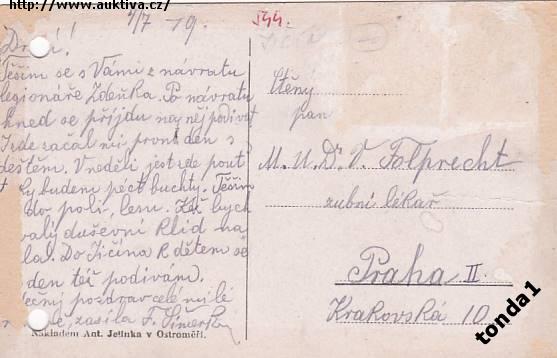 http://www.auktiva.cz/
/7 19.
544.
Těším se s Vámi z návratu
legionáře Zdeňka. Po návratu
hned se přijdu naň podívat
Zde začal mi první den s
deštěm. V neděli jest zde pouť
budem péct buchty. Těším
do polí, lesu.
duševní klid na
la. Do Jičína k dětem se
den též podívám.
pozdrav celé milé
zasílá F.
Nákladem Ant. Jelínka v Ostroměři.
Ctěný
pan
M.U.Dr. V. Folprecht
zubní lékař
Praha II.
Krakovská 10.
tonda1